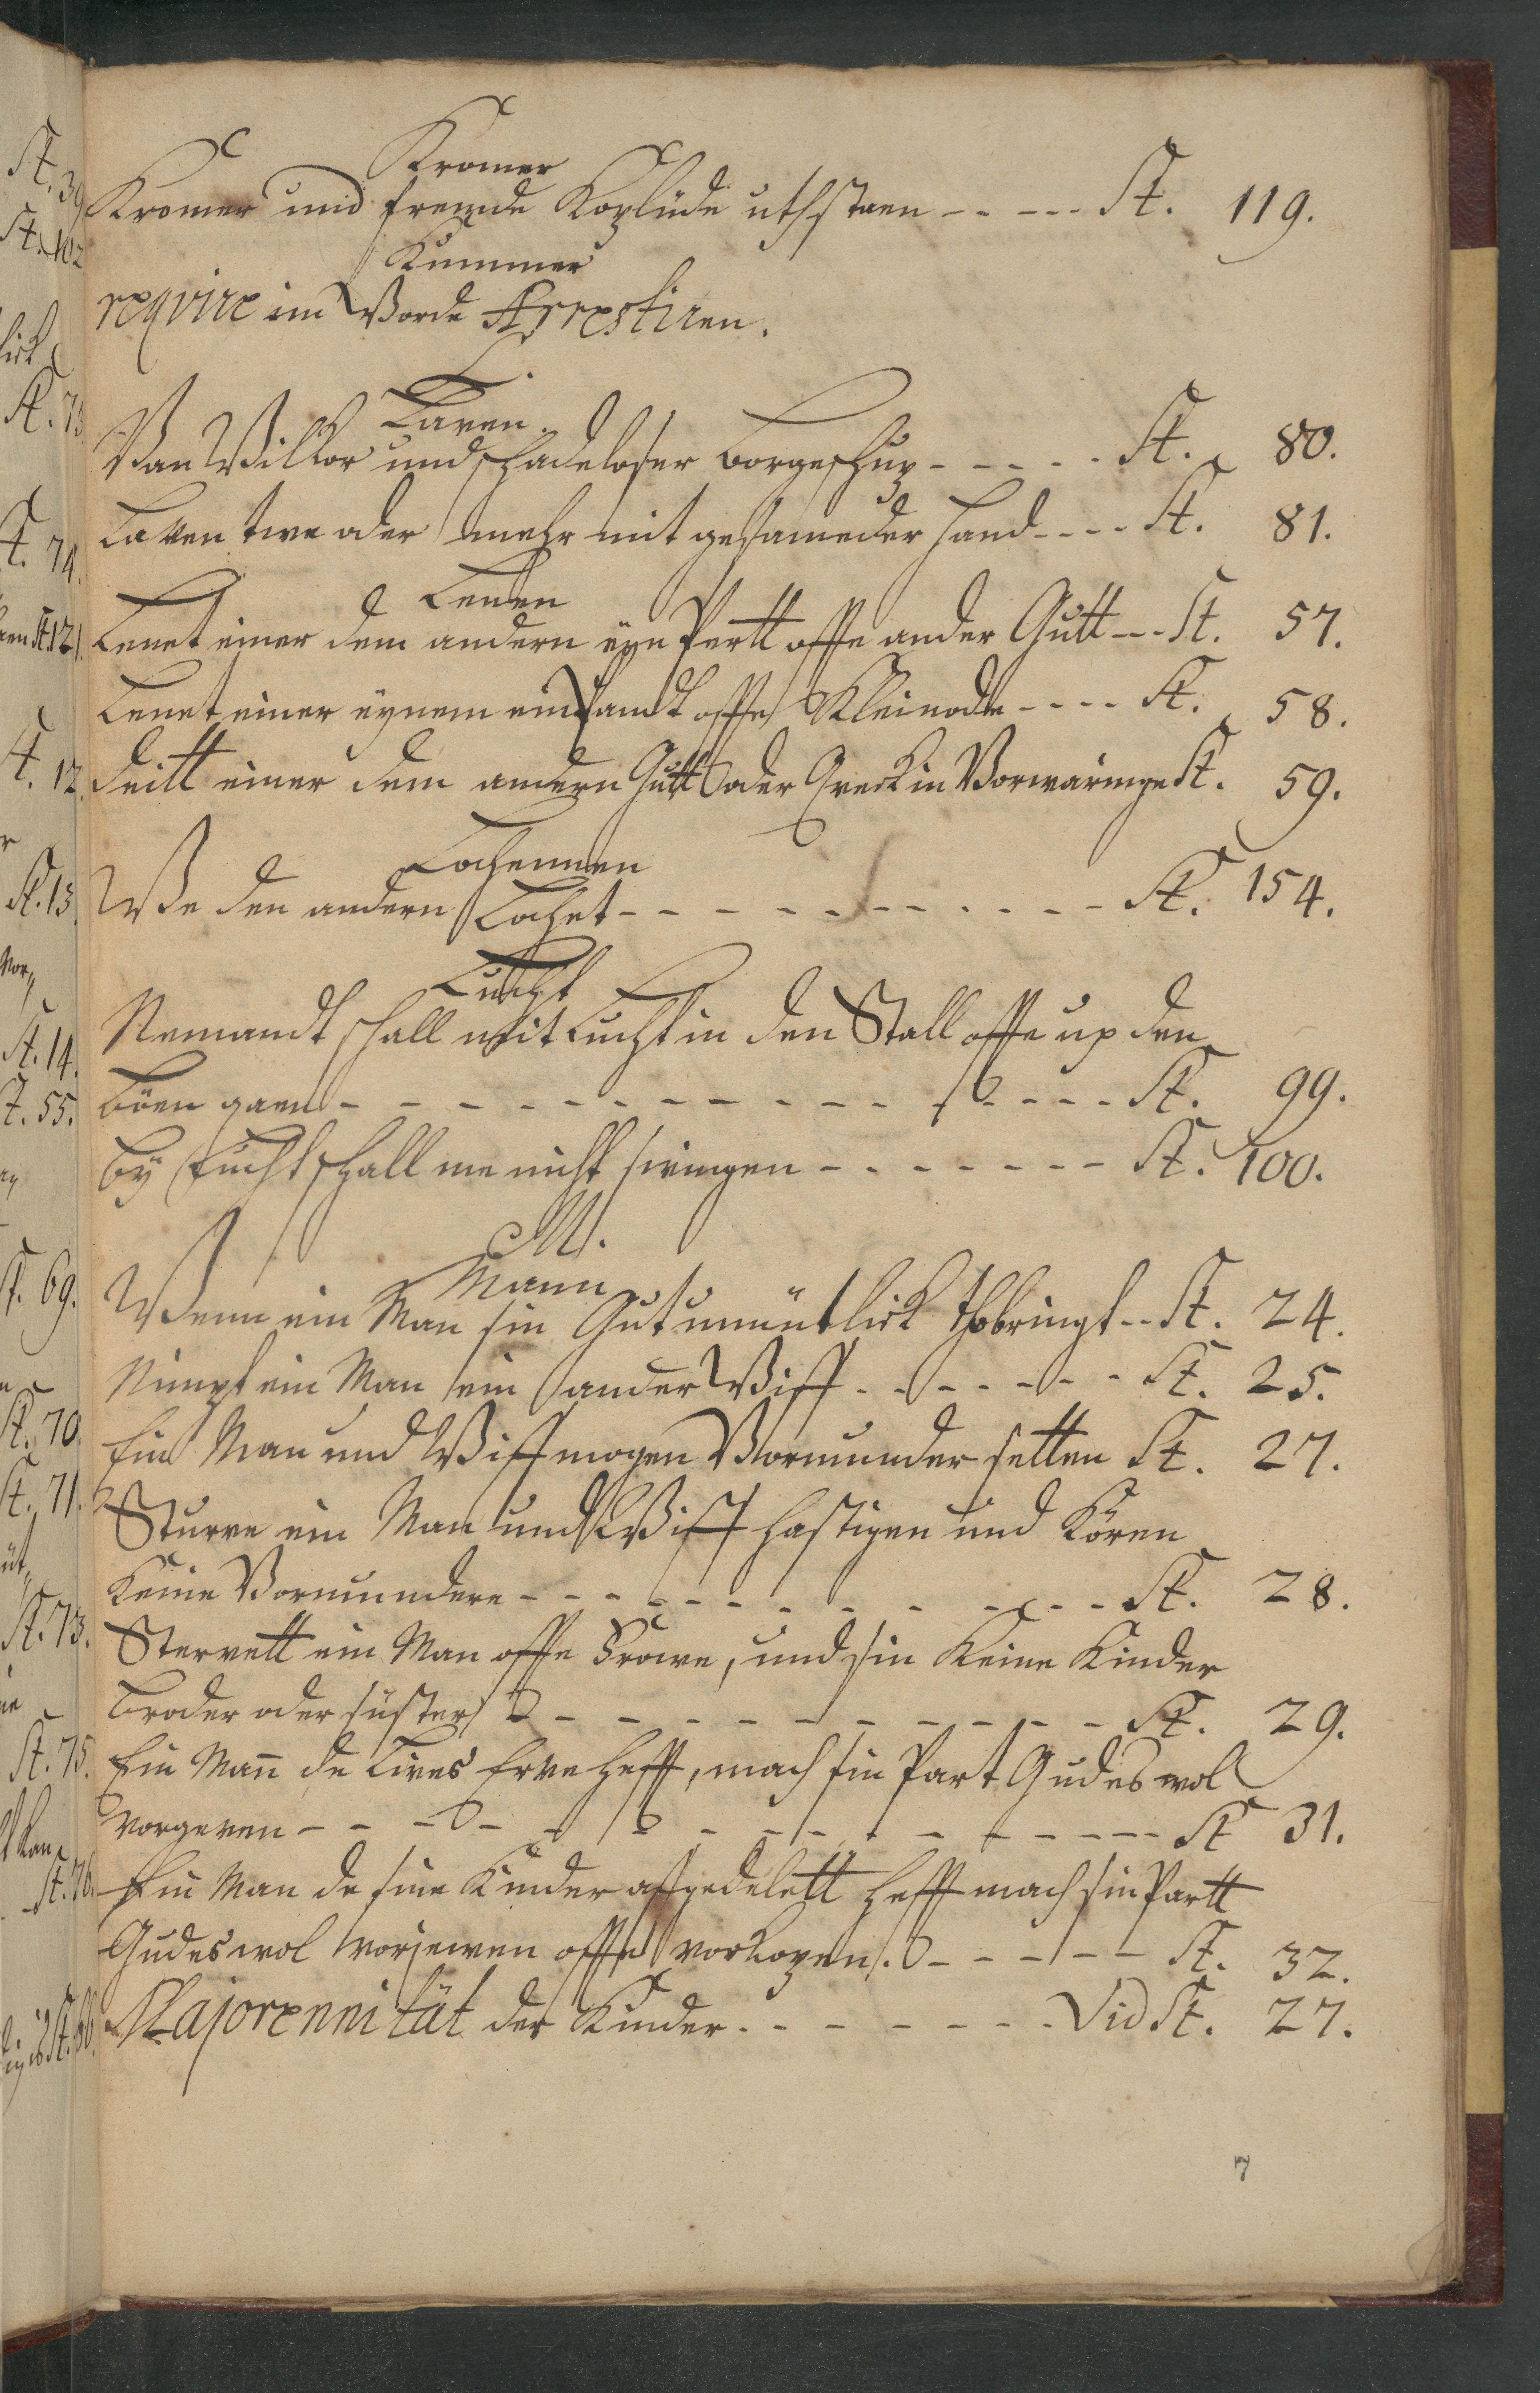 Kromer
Kromer und frembde Koplüde uthstaen - - - - - St. 119.
Kummer
reqvire im Worde Arrestiren.
L.
Laven.
Van Willkor und schadeloser borgeschup - - - - - St. 80.
Laven twe oder mehr mit gesameder Hand - - - - St. 81.
Lenen
Lenet einer dem andern eyn Perdt offte ander Gutt - - - St. 57.
Lenet einer eynem ein Pandt offte Kleinode - - - - St. 58.
Deitt einer dem andern Gutt oder Qveck in Vorwaringe St. 59.
We den andern - - - - - - - - - - - St. 154.
Lucht
Nemandt schall mit Lucht in den Stall offte up den
Böen gaen - - - - - - - - - - - - - - - - St. 99.
By Lucht schall me nicht swingen - - - - - - - St. 100.
M.
Mann
Wenn ein Man sin Gut unnütlick thobringt - - St. 24.
Nimpt ein Man ein ander Wiff - - - - - - - St. 25.
Ein Man und Wiff mogen Vormunder setten St. 27.
Sturve ein Man und Wiff hastigen und Kören
Keine Vormundere - - - - - - - - - - - - - St. 28.
Stervett ein Man offte Frowe, und sin Keine Kinder
Broder oder süster - - - - - - - - - - - St. 29.
Ein Man̄ de Lives Erve hefft, mach sin Part Gudes wol
vorgeven - - - - - - - - - - - - - - - - St 31.
Ein Man de sine Kinder affgedelett hefft mach sin Partt
Gudes wol vorgeven offte vorkopen. - - - - - St. 32.
Majorennität der Kinder - - - - - - - - Vid St. 27.
7